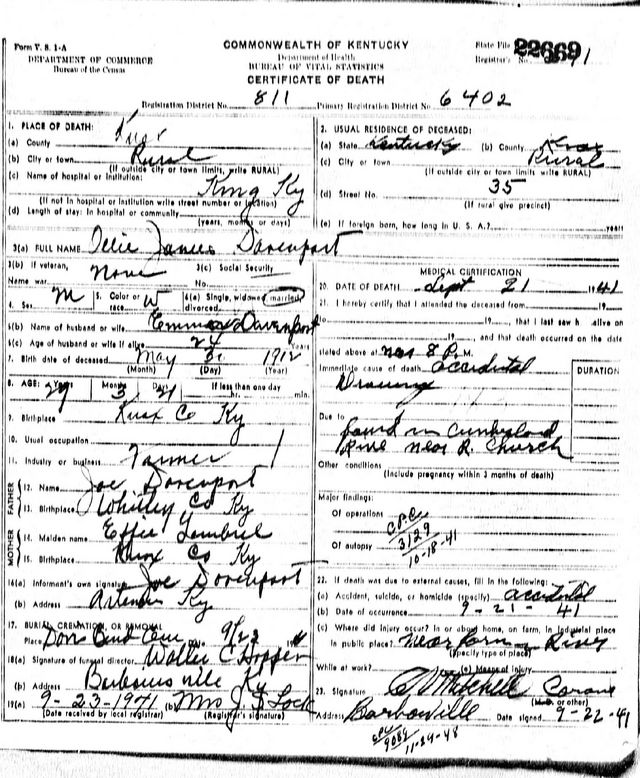 Form V. S. 1-A
DEPARTMENT OF COMMERCE
Bureau of the Census
COMMONWEALTH OF KENTUCKY
Department of Health
BUREAU OF VITAL STATISTICS
CERTIFICATE OF DEATH
State File No. 22669
Registrar's 91
Registration District No. 811 Primary Registration District No. 6402
1. PLACE OF DEATH: Knox
(a) County
(b) City or town Rural
(If outside city or town limits, write RURAL)
(c) Name of hospital or institution: King Ky
(If not in hospital or institution write street number or location)
(d) Length of stay: In hospital or community
(years, months or days)
2. USUAL RESIDENCE OF DECEASED:
(a) State Kentucky (b) County Knox
(c) City or town Rural
(If outside city or town limits write RURAL)
(d) Street No. 35
(If rural give precinct)
(e) If foreign born, how long in U. S. A.? years
3(a) FULL NAME James Davenport
3(b) If veteran, None 3(c) Social Security
Name war No.
4. Sex M 5. Color or race W 6(a) Single, widowed, married, divorced
6(b) Name of husband or wife Davenport
6(c) Age of husband or wife if alive 24 Years
7. Birth date of deceased May 31 1912
(Month) (Day) (Year)
8. AGE: Years 29 Months 3 Days 21 If less than one day hr. min.
9. Birthplace Knox Co Ky
10. Usual occupation
11. Industry or business Farmer
FATHER
12. Name Joe Davenport
13. Birthplace Whitley Co Ky
MOTHER
14. Maiden name Effie
15. Birthplace Knox Co Ky
16(a) Informant's own signature Joe Davenport
(b) Address Artemus Ky
17. BURIAL, CREMATION, OR REMOVAL
Place Bend Cem 9/23
18(a) Signature of funeral director Walter C Hopper
(b) Address Barbourville Ky
19(a) 9-23-1941 (b) Mrs J. Lock
(Date received by local registrar) (Registrar's signature)
MEDICAL CERTIFICATION
20. DATE OF DEATH Sept 21 1941
21. I hereby certify that I attended the deceased from 19
19 , that I last saw h alive on
19 , and that death occurred on the date
stated above at 8 P.M.
Immediate cause of death accidental
Drowning
DURATION
Due to found in Cumberland
River near R. Church
Other conditions
(Include pregnancy within 3 months of death)
Major findings:
Of operations
Of autopsy
C.P.C.
3129
10-18-41
22. If death was due to external causes, fill in the following:
(a) Accident, suicide, or homicide (specify) accidental
(b) Date of occurrence 9-21-41
(c) Where did injury occur? In or about home, on farm, in industrial place
in public place? near River
(Specify type of place)
While at work? (e) Means of injury
23. Signature Mitchell
(M.D. or other)
Address Barbourville Date signed 9-22-41
9089
11-29-48